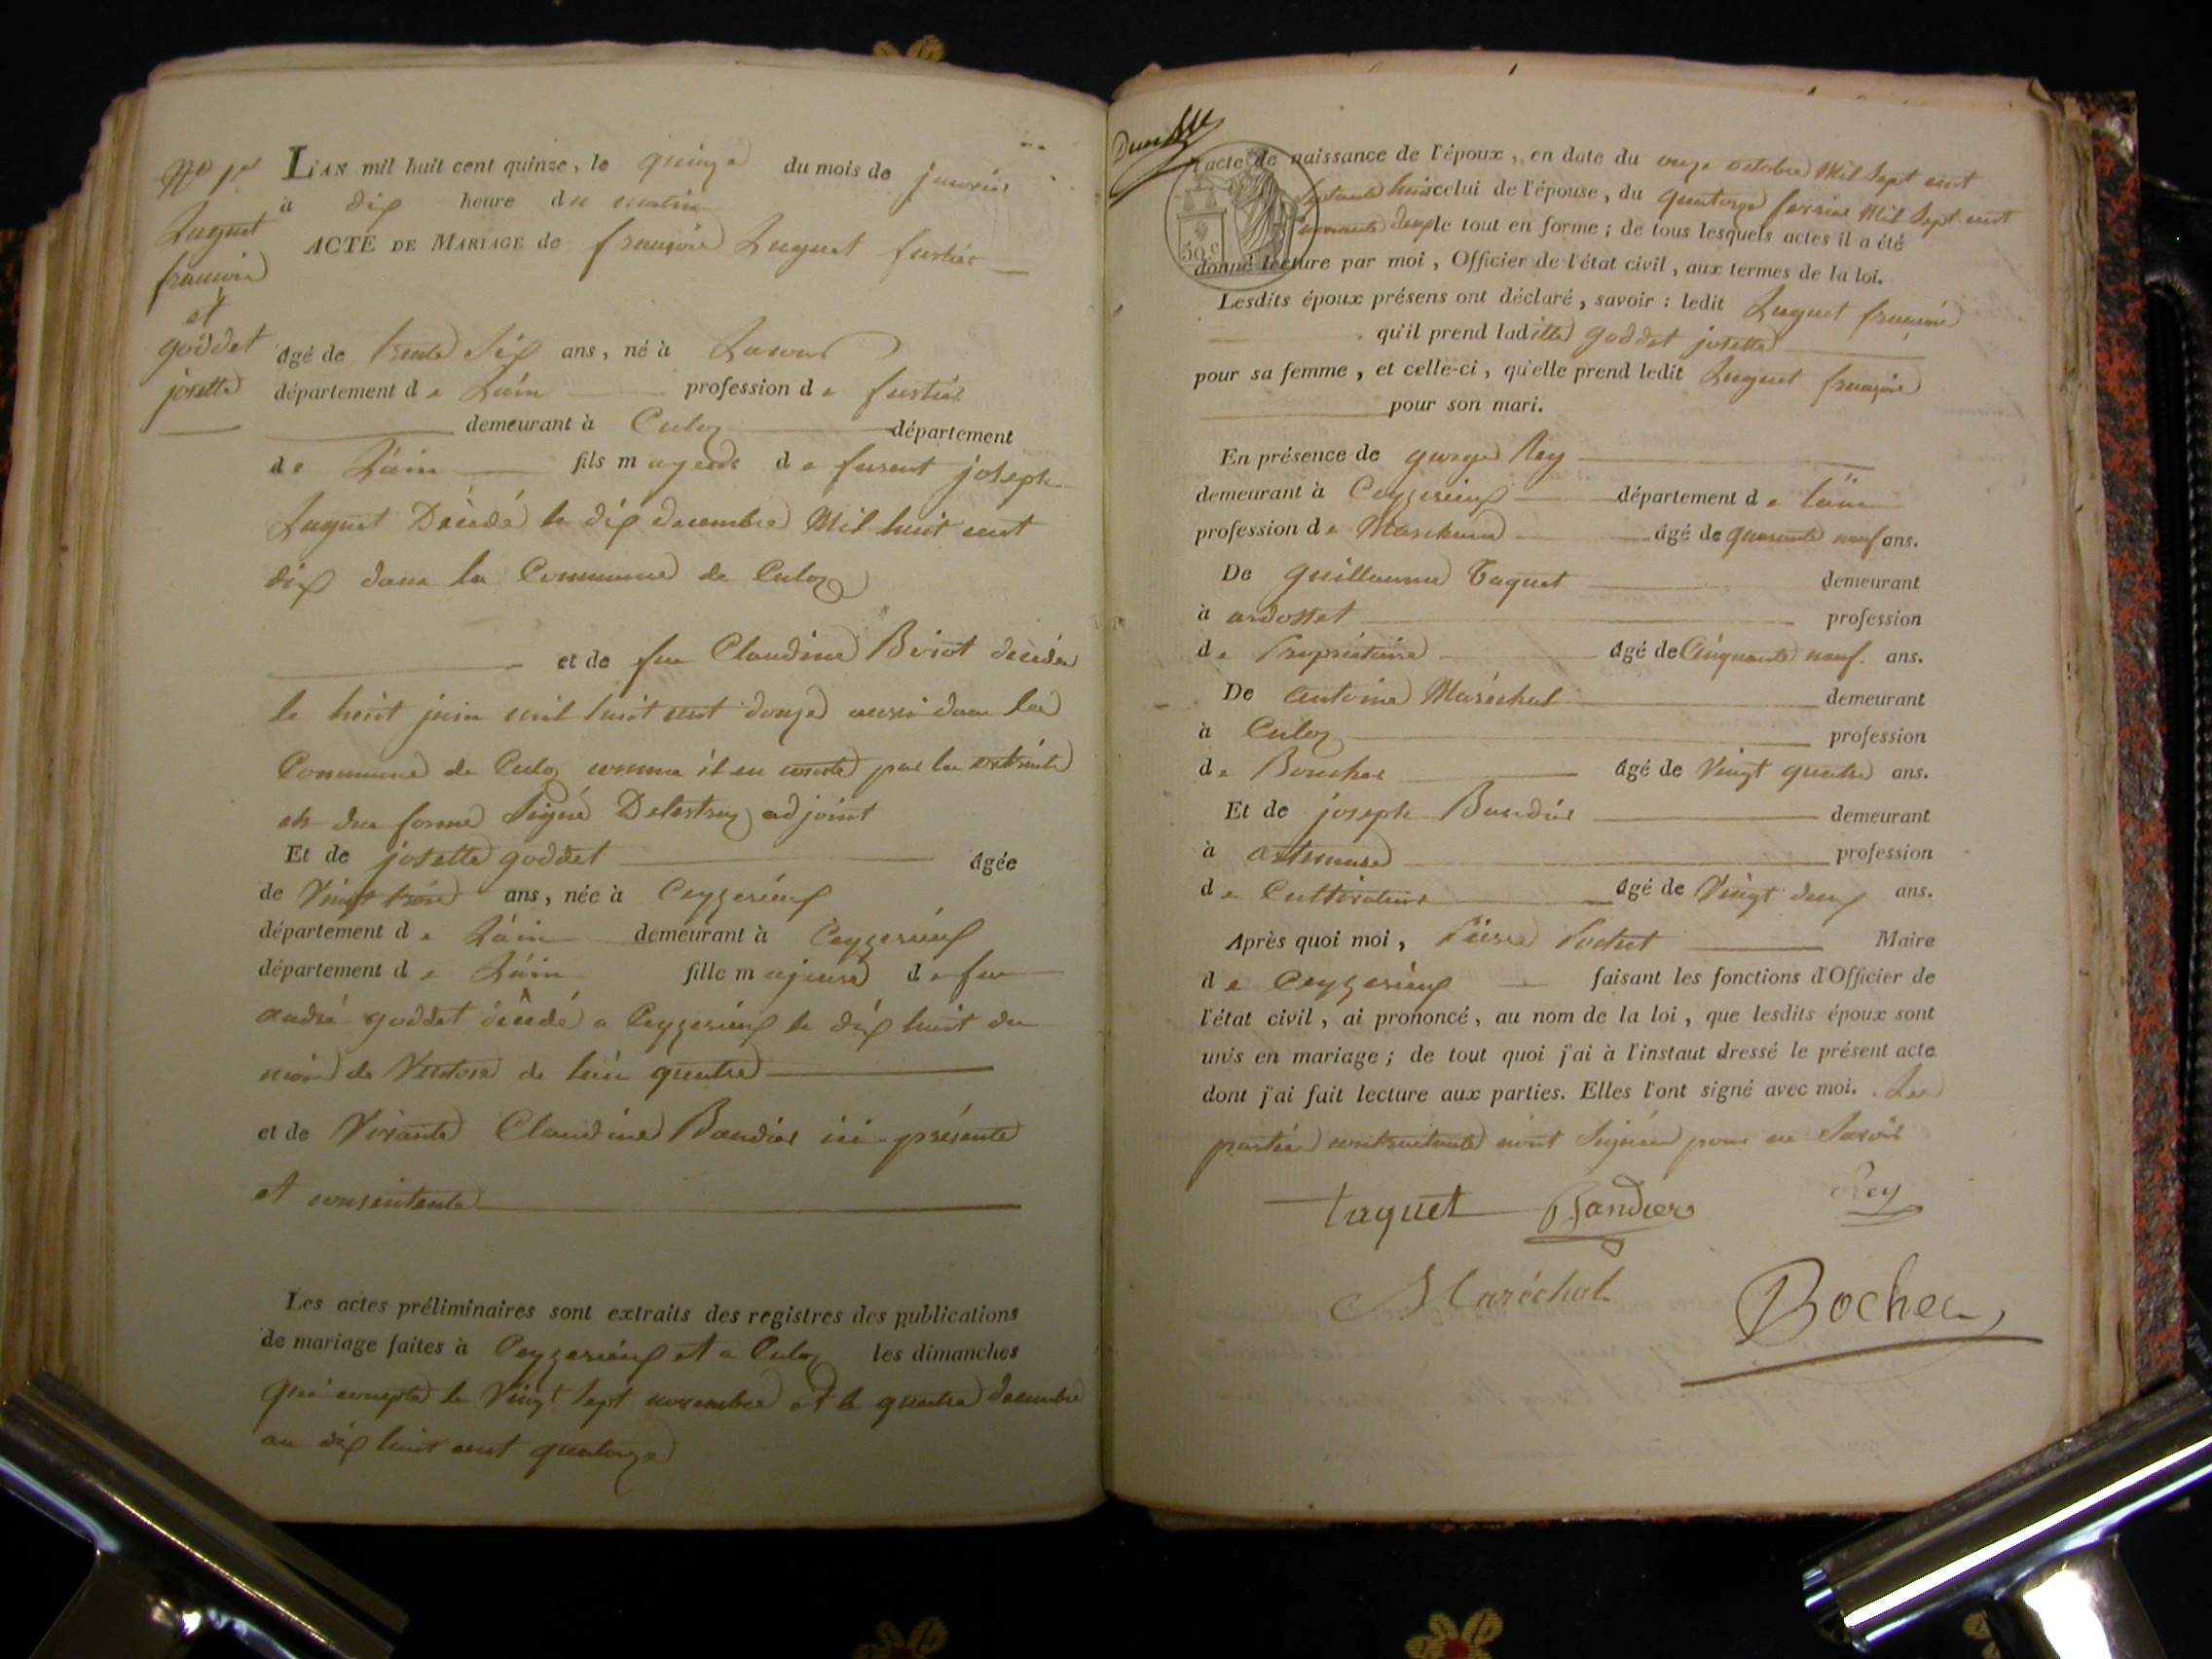 No 1er
Luquet
françois
et
goddet
josette
L'AN mil huit cent quinze, le quinze du mois de janvier
à dix heure du matin
ACTE DE MARIAGE de françois Luquet fustier
âgé de trente six ans, né à Lavours
département de Lain profession de fustier
demeurant à Culoz département
de Lain fils majeur de furent joseph
Luquet Décédé le dix decembre Mil huit cent
dix dans la Commune de Culoz
et de feu Claudine Beriot décédée
le huit juin mil huit cent douze aussi dans la
Commune de Culoz comme il en conste par les extraits
en due forme Signé Delestraz adjoint
Et de josette goddet âgée
de Vingt trois ans, née à Ceyzerieux
département de Lain demeurant à Ceyzerieux
département de Lain fille majeure de feu
andré goddet décédé a Ceyzerieux le dix huit du
mois de Ventose de l'an quatre
et de Vivante Claudine Baudier ici présente
et consentente
Les actes préliminaires sont extraits des registres des publications
de mariage faites à Ceyzerieux et a Culoz les dimanches
qui compte le Vingt Sept novembre et le quatre decembre
an dix huit cent quatorze
l'acte de naissance de l'époux, en date du onze octobre Mil Sept cent
Septante huit celui de l'épouse, du quatorze fevrier Mil Sept cent
nonante deux le tout en forme ; de tous lesquels actes il a été
50 c
donné lecture par moi, Officier de l'état civil, aux termes de la loi.
Lesdits époux présens ont déclaré, savoir : ledit Luquet françois
qu'il prend laditte goddet josette
pour sa femme, et celle-ci, qu'elle prend ledit Luquet françois
pour son mari.
En présence de george Rey
demeurant à Ceyzerieux département de Lain
profession de Marchand âgé de quarante neuf ans.
De guillaume Taquet demeurant
à ardosset profession
de Propriétaire âgé de Cinquante neuf ans.
De antoine Maréchal demeurant
à Culoz profession
de Boucher âgé de Vingt quatre ans.
Et de joseph Baudier demeurant
à artemare profession
de Cultivateur âgé de Vingt deux ans.
Après quoi moi, Pierre Pochet Maire
de Ceyzerieux faisant les fonctions d'Officier de
l'état civil, ai prononcé, au nom de la loi, que lesdits époux sont
unis en mariage ; de tout quoi j'ai à l'instant dressé le présent acte
dont j'ai fait lecture aux parties. Elles l'ont signé avec moi. Les
parties contractante n'ont Signées pour ne Savoir
Taquet Bandier Rey
Maréchal
Bochet